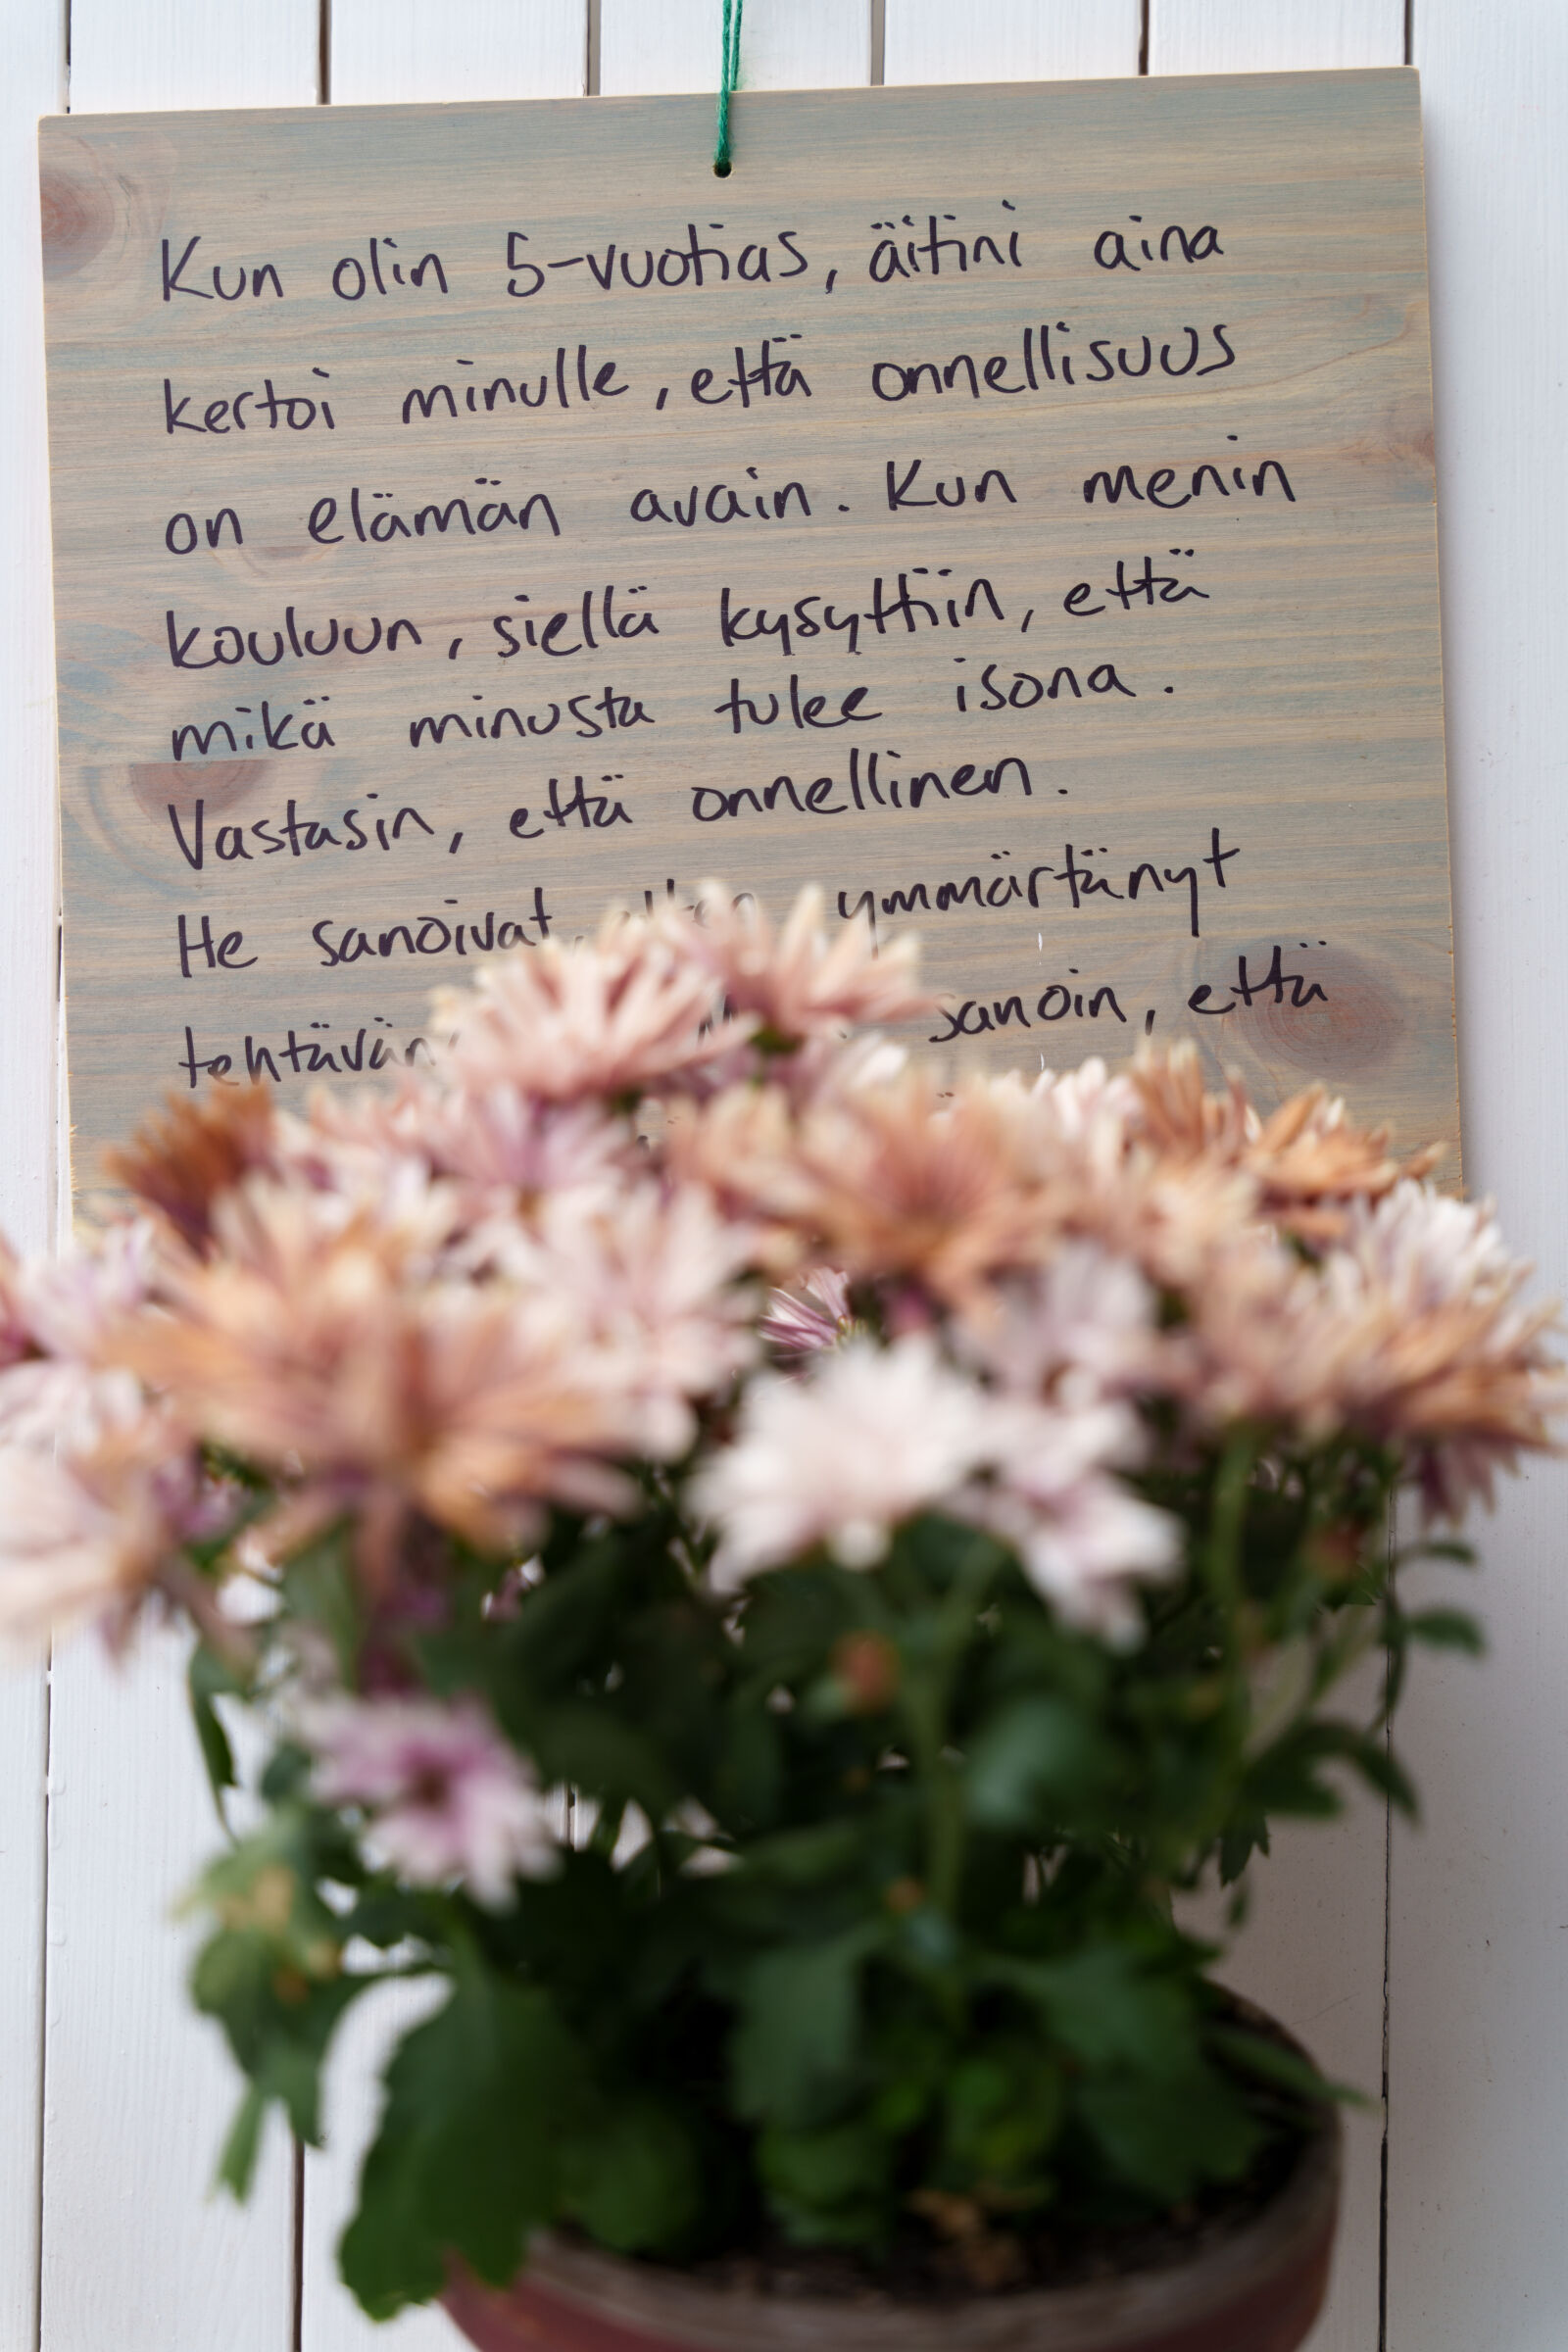 Kun olin 5-vuotias, äitini aina
kertoi minulle, että onnellisuus
on elämän avain. Kun menin
kouluun, siellä kysyttiin, että
mikä minusta tulee isona.
Vastasin, että onnellinen.
He sanoivat, ymmärtänyt
sanoin, että